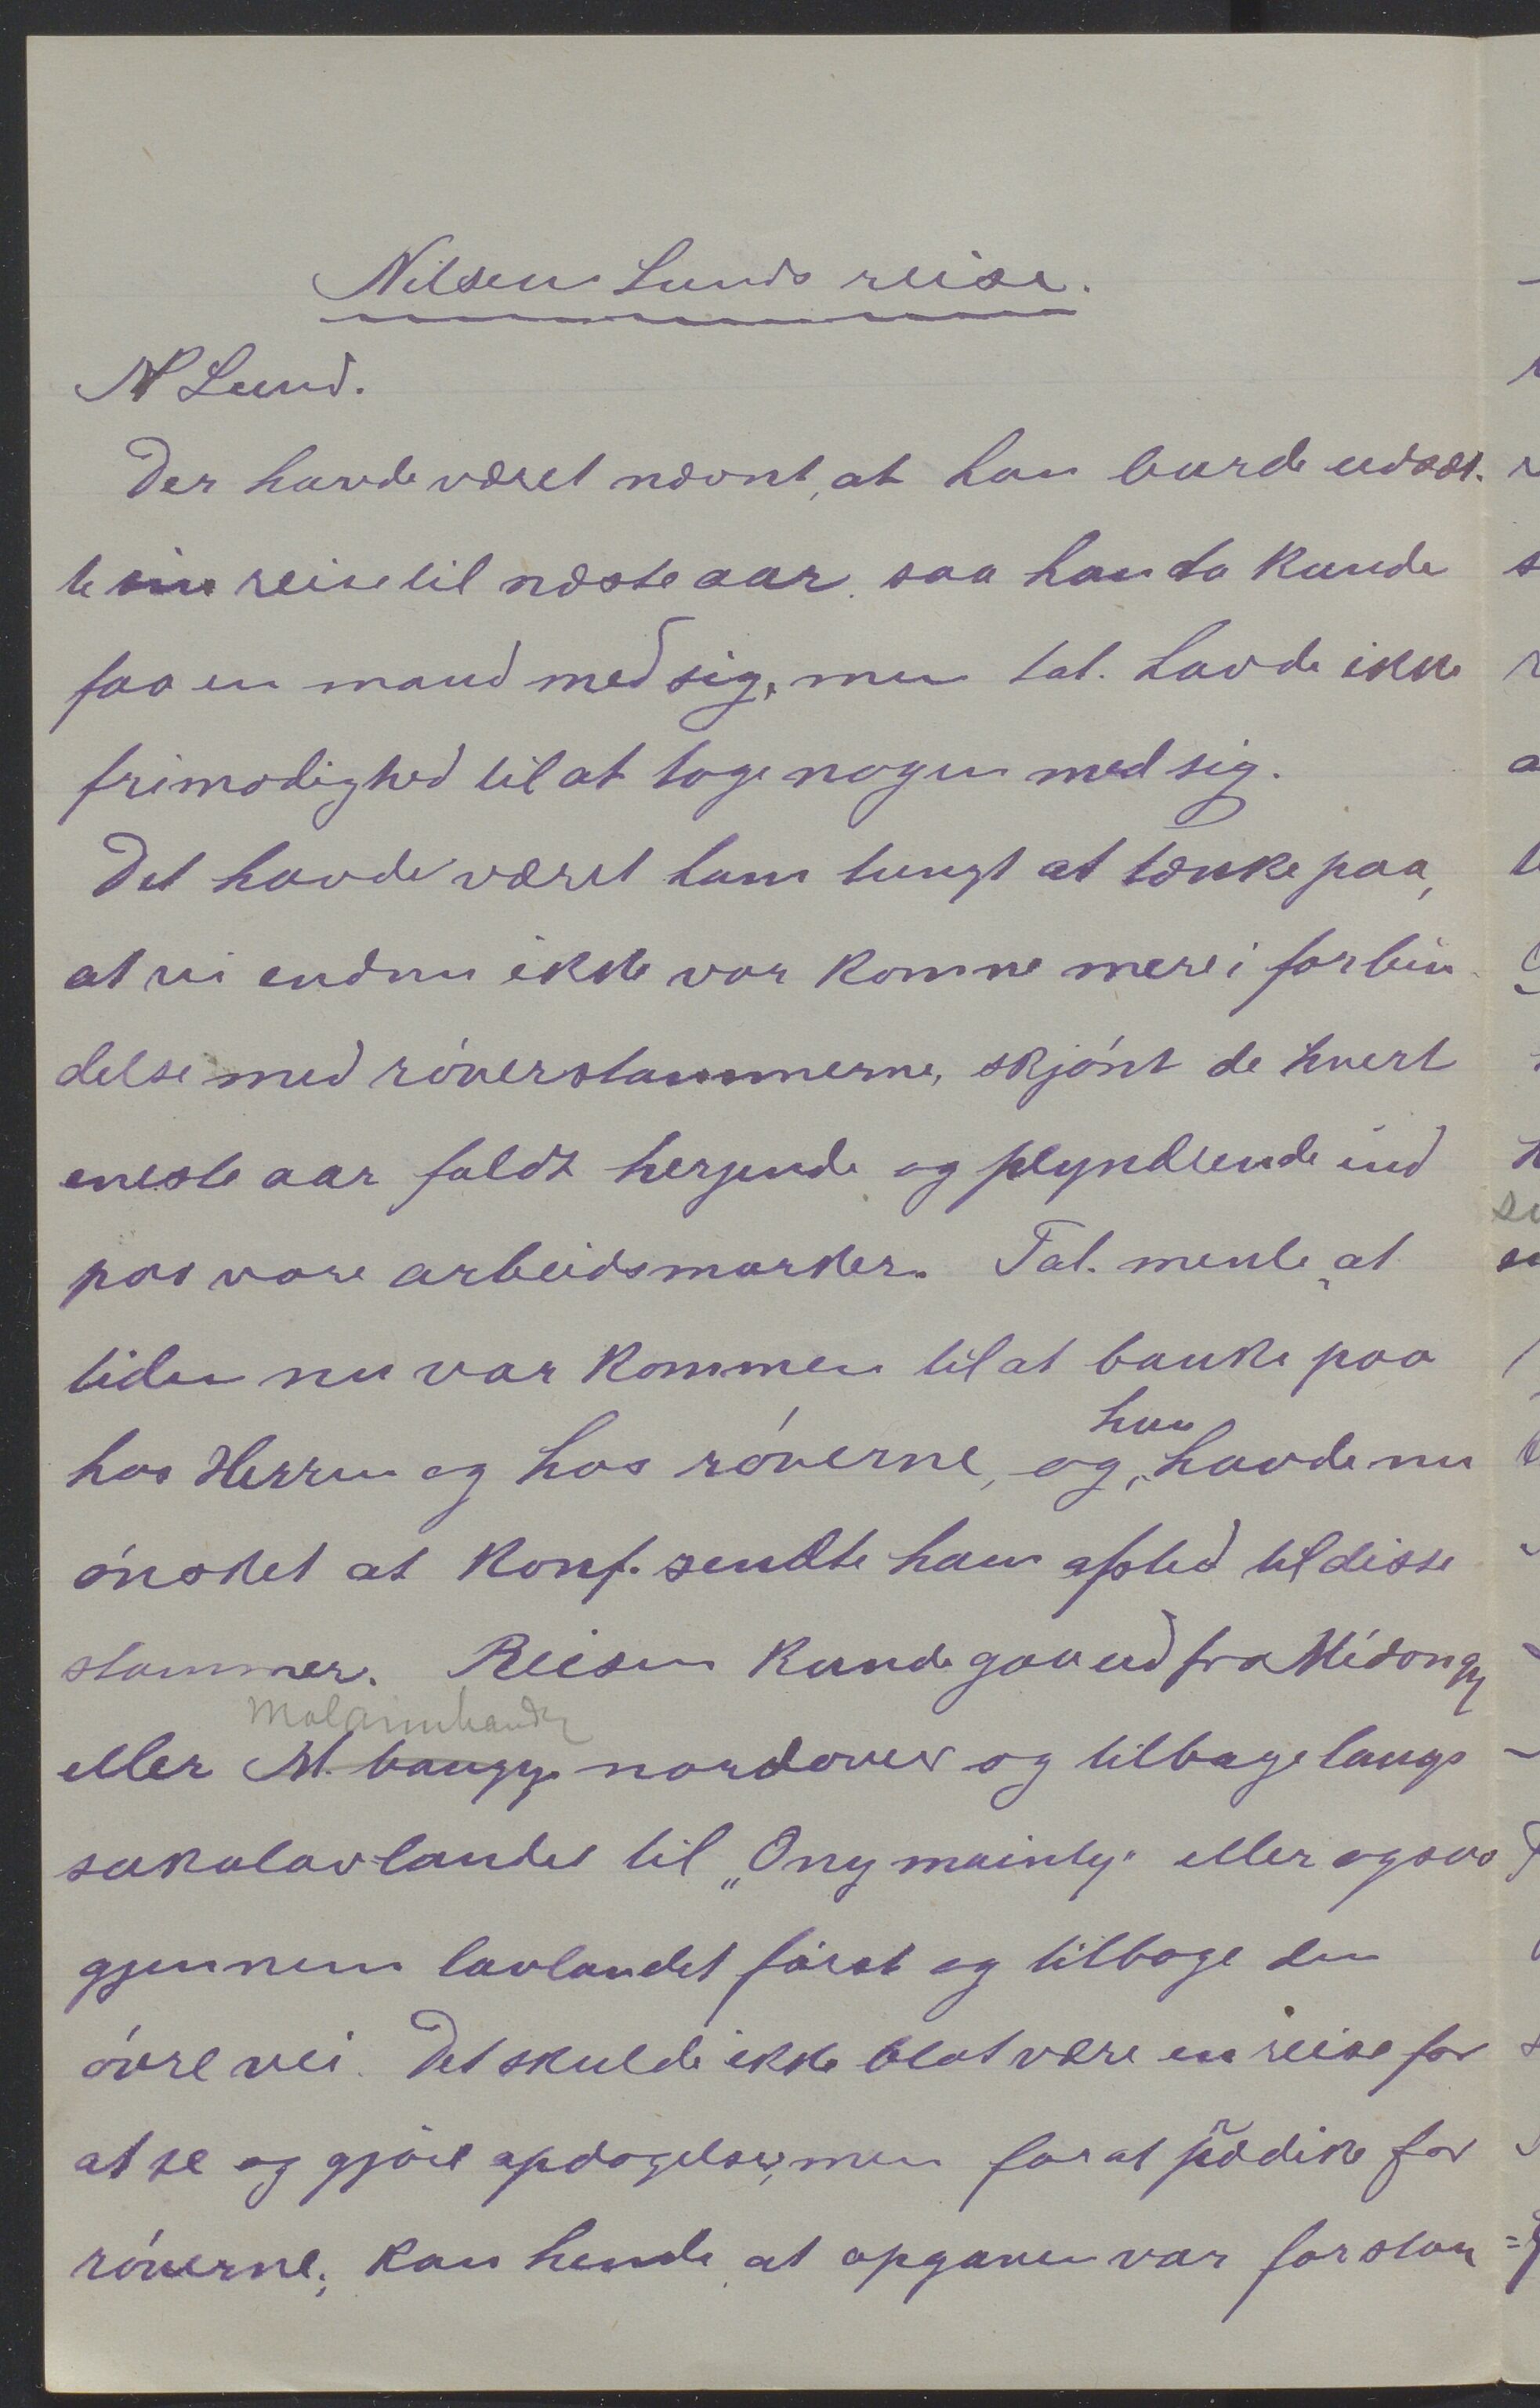 Nilsen Lunds reise.
N Lund.
Der havde været nævnt, at han burde udsæt-
te sin reise til næste aar, saa han da kunde
faa en mand med sig, men tal. havde ikke
frimodighed til at tage nogen med sig.
Det havde været ham tungt at tænke paa,
at vi endnu ikke var komne mere i forbin-
delse med röverstammerne, skjönt de hvert
eneste aar faldt herjende og plyndrende ind
paa vore arbeidsmarker. Tal. mente, at
tiden nu var kommen til at banke paa
hos Herren og hos röverne, og han havde nu
önsket at Konf. sendte ham afsted til disse
stammer. Reisen kunde gaa ud fra Midongy
Malaimbandy
eller M. bangy nordover og tilbage langs
sakalavlandet til „Ony mainty" eller ogsaa
gjennem lavlandet först og tilbage den
övre vei. Det skulde ikke blot være en reise for
at se og gjöre opdagelser, men for at prædike for
röverne; kan hende, at opgaven var for stor